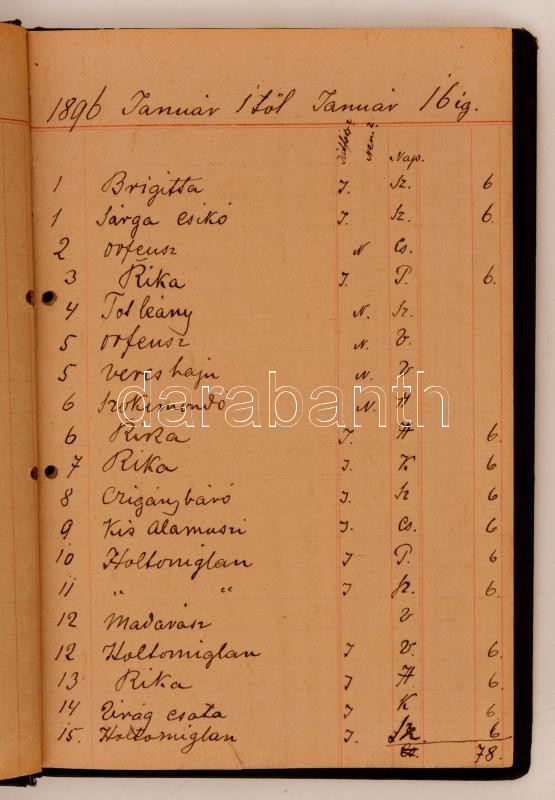 1896 Január 1től Január 16ig.
Nap.
1 Brigitta I. Sz. 6
1 Sárga csikó I. Sz. 6.
2 orfeusz N Cs.
3 Rika I. P. 6.
4 Tot leány N. Sz.
5 orfeusz N. V.
5 veres haju N. V
6 N. H
6 Rika I. H 6.
7 Rika I. K. 6
8 Czigánybáró I. Sz 6
9 Kis Alamuszi I. Cs. 6
10 Holtomiglan I P. 6
11 " " I Sz. 6.
12 Madarász V
12 Holtomiglan I V. 6.
13 Rika I H 6.
14 Virág csata I K 6
15. Holtomiglan I. Sz. 6
78.
darabanth